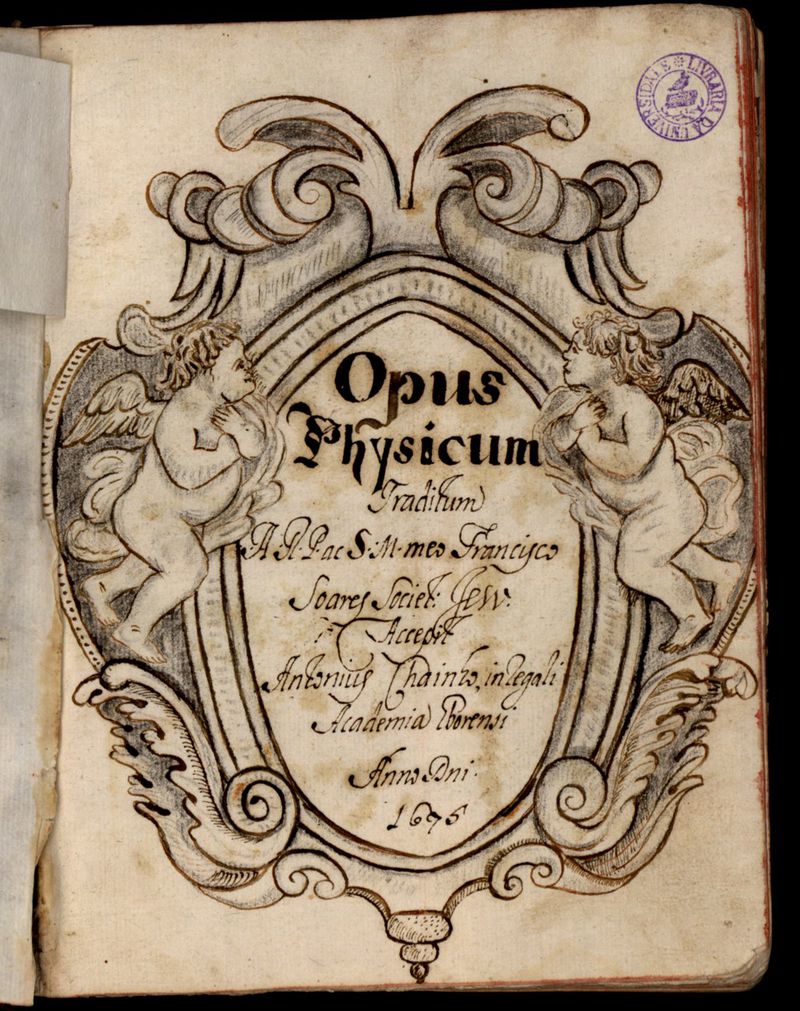 LIVRARIA DA UNIVERSIDADE
Opus
Physicum
Traditum
A R. P. ac S. M. meo Francisco
Soares Societ: Jesu.
Accepit
Antonius in regali
Academia Eborensi
Anno Dni.
1675